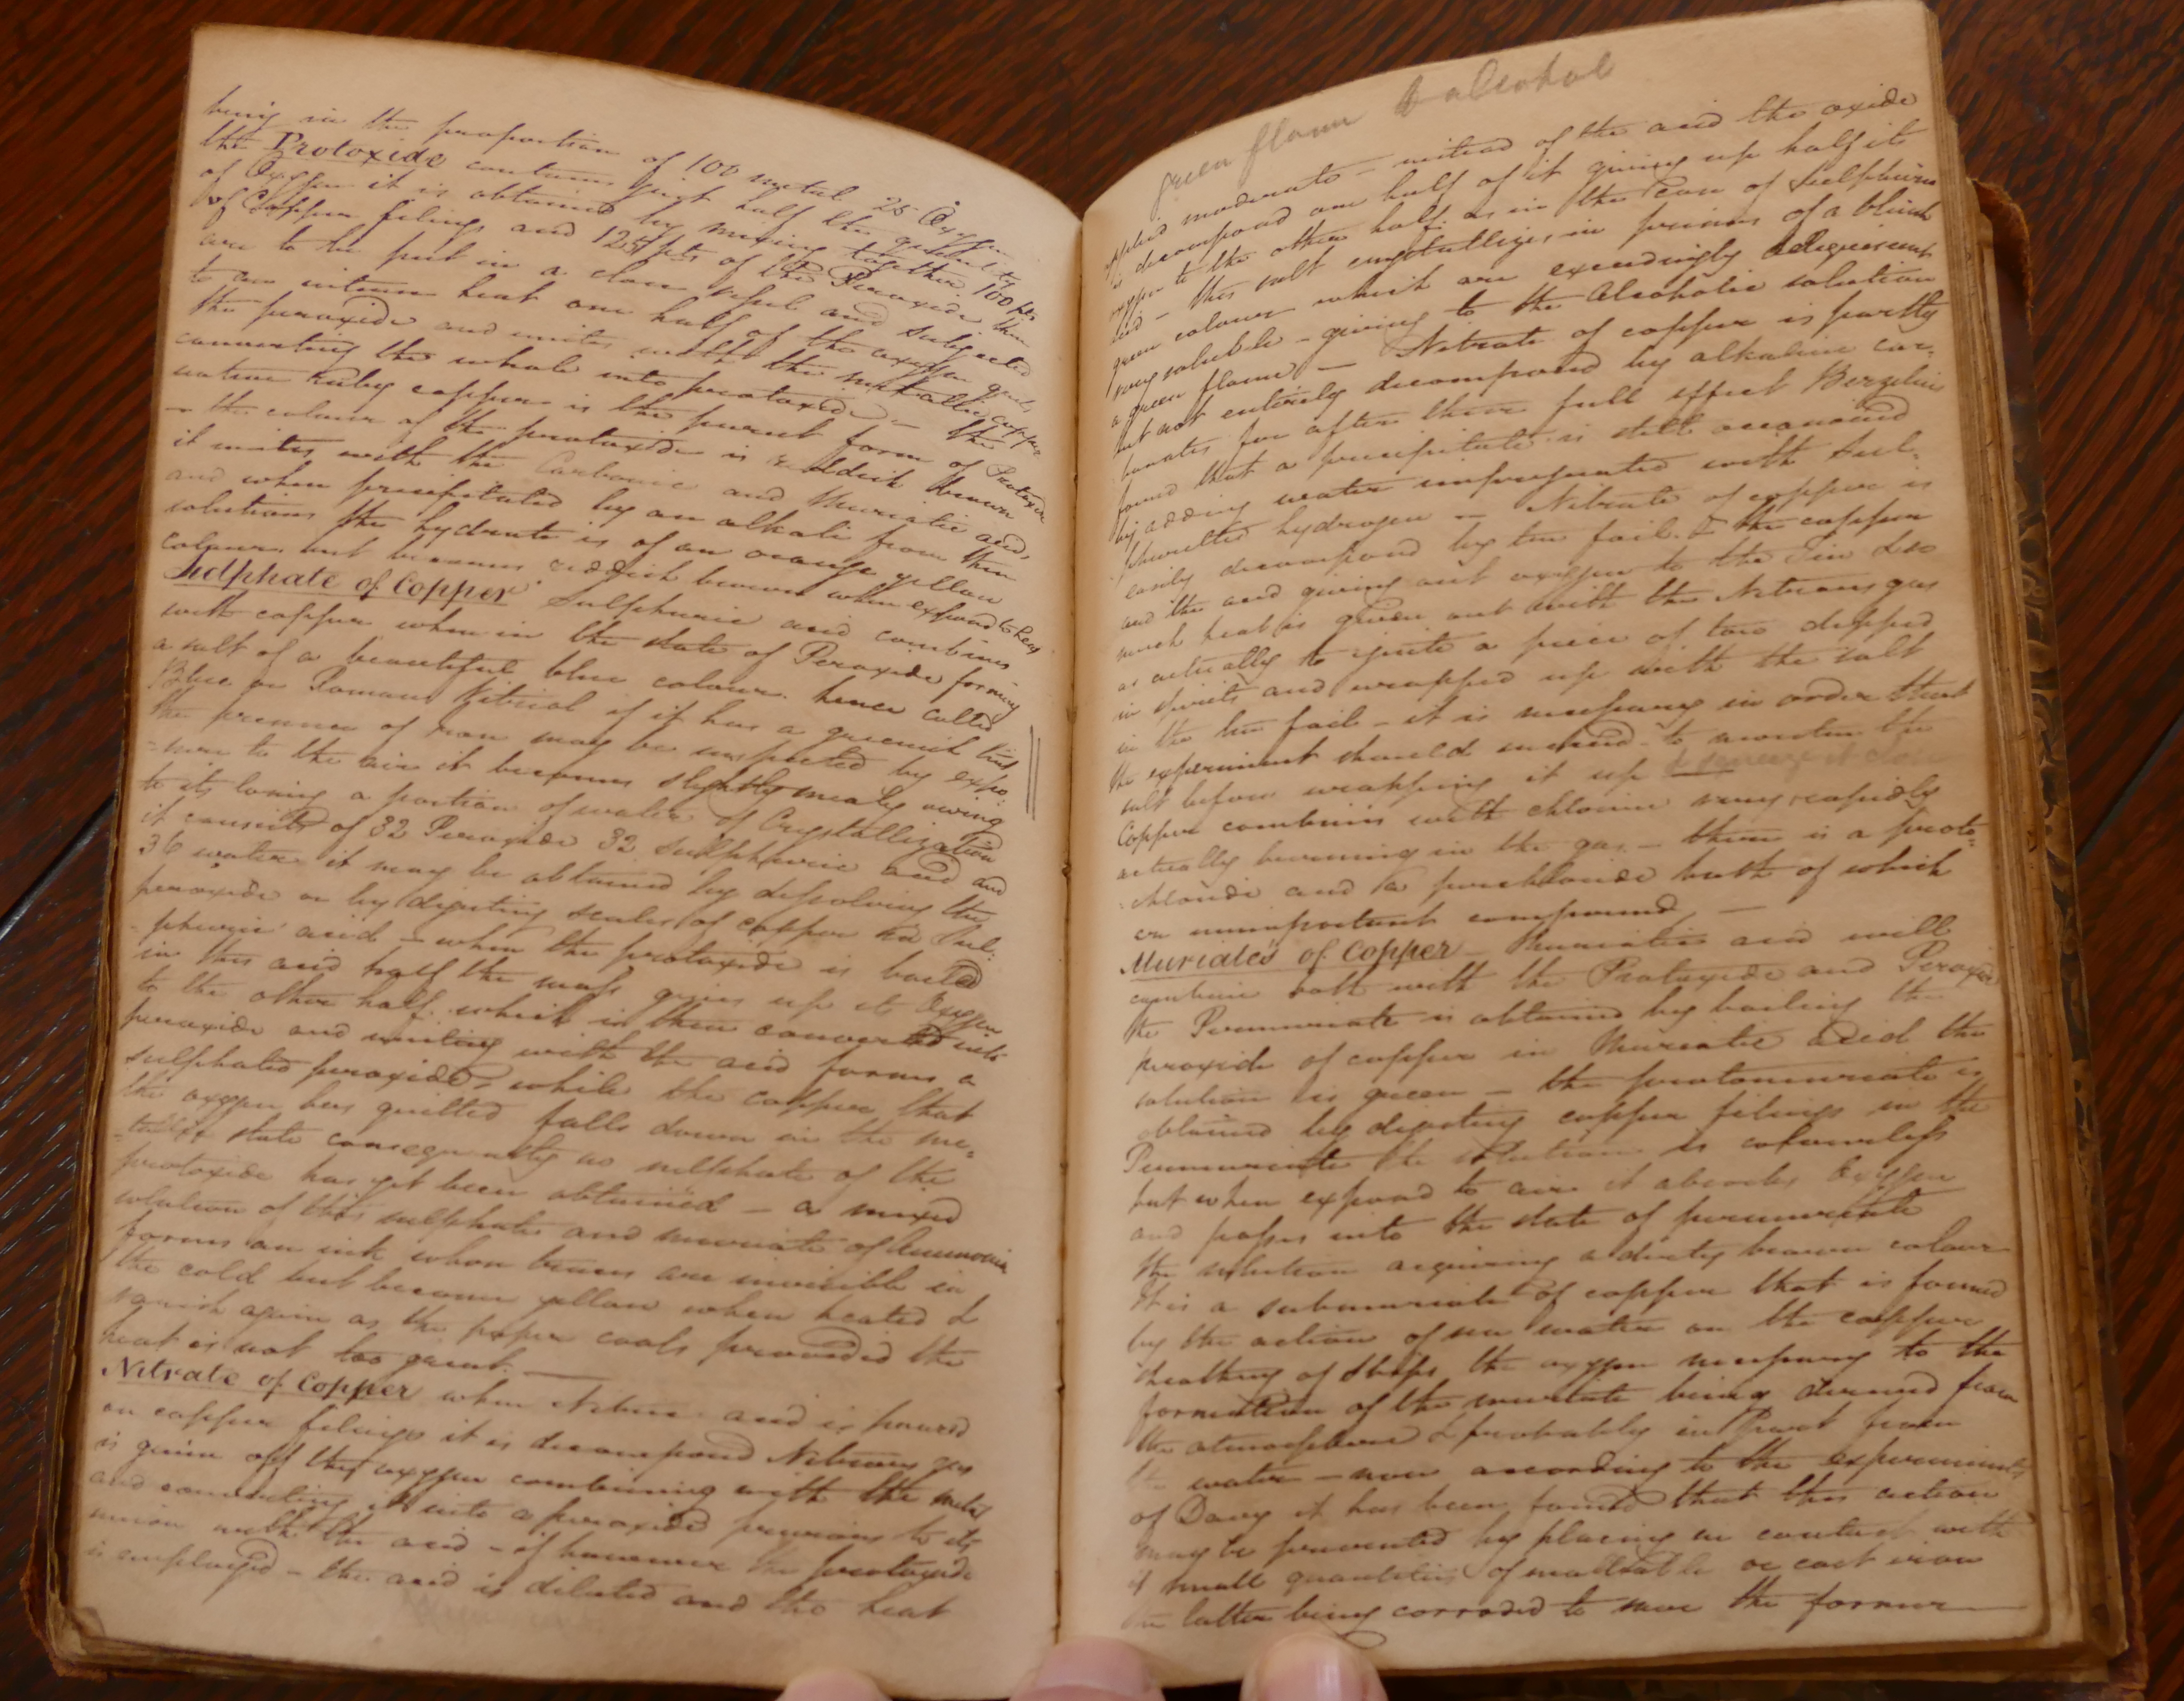 being in the proportion of 100 metal 25 Oxygen
the Protoxide contains just half the quantity
of Oxygen it is obtained by mixing together 100 pts
of Copper filings and 125 pts of the Peroxide then
are to be put in a close vessel and subjected
to an intense heat one half of the oxygen quits
the peroxide and unites with the metallic copper
converting the whole into protoxide — the
native Ruby copper is the purest form of Protoxide
— the colour of the protoxide is reddish brown
it unites with the Carbonic and Muriatic acids
and when precipitated by an alkali from these
solutions the hydrate is of an orange yellow
colour but becomes reddish brown when exposed to heat
Sulphate of Copper Sulphuric acid combines
with copper when in the state of Peroxide forming
a salt of a beautiful blue colour. hence called
Blue or Roman Vitriol if it has a greenish tint
the presence of Iron may be suspected by expo-
-sure to the air it becomes slightly mealy owing
to its losing a portion of water of Crystallization
it consists of 32 Peroxide 32 Sulphuric acid and
36 water it may be obtained by dissolving the
peroxide or by digesting scales of copper in Sul-
-phuric acid — when the protoxide is boiled
in this acid half the mass gives up its Oxygen
to the other half. which is then converted into
peroxide and uniting with the acid forms a
sulphated peroxide, while the copper that
the oxygen has quitted falls down in the me-
-tallic state consequently no sulphate of the
protoxide has yet been obtained — a mixed
solution of this sulphate and muriate of Ammonia
forms an ink whose traces are invisible in
the cold but become yellow when heated &
vanish again as the paper cools provided the
heat is not too great. —
Nitrate of Copper when Nitric acid is poured
on copper filings it is decomposed Nitrous gas
is given off the oxygen combining with the metal
and converting it into a peroxide previous to its
union with the acid — if however the protoxide
is employed — the acid is diluted and the heat
green flame & alcohol
applied moderate — instead of the acid the oxide
is decomposed one half of it giving up half its
oxygen to the other half. as in the case of Sulphuric
acid — this salt crystallizes in prisms of a bluish
green colour which are exceedingly deliquescent
very soluble — giving to the Alcoholic solution
a green flame) — Nitrate of copper is partly
but not entirely decomposed by alkaline car-
bonates for after their full effect Berzelius
found that a precipitate is still occasioned
by adding water impregnated with Sul-
-phuretted hydrogen — Nitrate of copper is
easily decomposed by tin foil. & the copper
and the acid giving out oxygen to the Tin so
much heat is given out with the Nitrous gas
as actually to ignite a piece of tow dipped
in spirits and wrapped up with the salt
in the tin foil — it is necessary in order that
the experiment should succeed to moisten the
salt before wrapping it up & squeeze it close
Copper combines with chlorine very rapidly
actually burning in the gas — there is a proto-
-chloride and a perchloride both of which
are unimportant compounds —
Muriates of Copper — Muriatic acid will
combine both with the Protoxide and Peroxide
the Permuriate is obtained by boiling the
peroxide of copper in Muriatic acid the
solution is green — the protomuriate is
obtained by digesting copper filings in the
Permuriate the solution is colourless
but when exposed to air it absorbs Oxygen
and passes into the state of permuriate
the solution acquiring a dirty brown colour
It is a submuriate of copper that is formed
by the action of sea water on the copper
sheathing of Ships the oxygen necessary to the
formation of the muriate being derived from
the atmosphere & probably in Part from
the water — now according to the experiments
of Davy it has been found that this action
may be prevented by placing in contact with
it small quantities of malleable or cast iron
the latter being corroded to save the former —